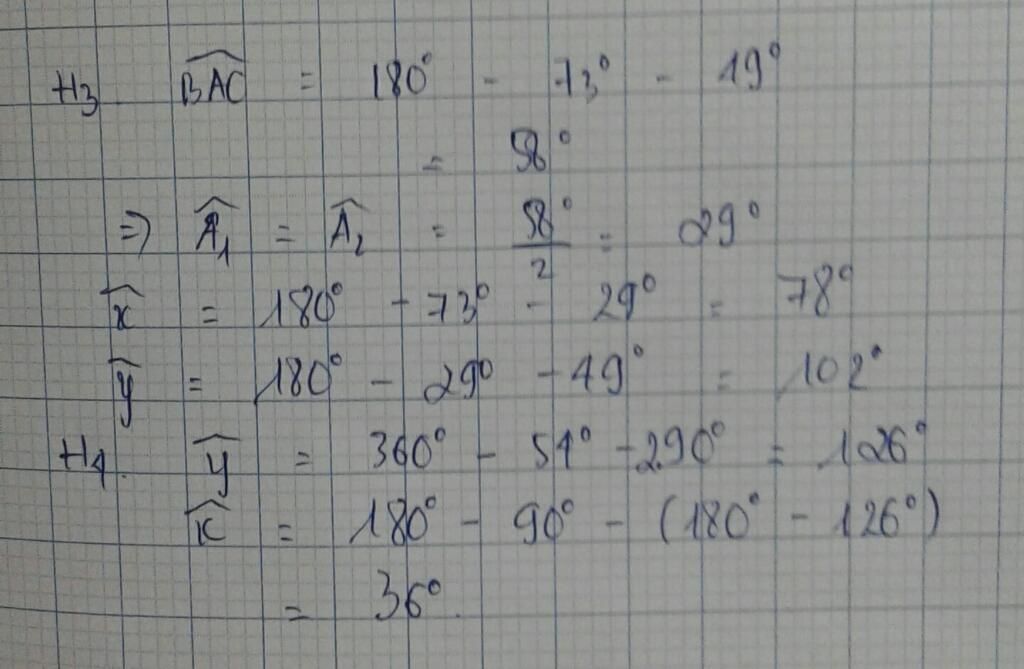 H3 $\widehat{BAC}$ = 180° - 73° - 49°
= 58°
=> $\widehat{A}_1$ = $\widehat{A}_2$ = $\frac{58°}{2}$ = 29°
$\widehat{x}$ = 180° - 73° - 29° = 78°
$\widehat{y}$ = 180° - 29° - 49° = 102°
H4. $\widehat{y}$ = 360° - 54° - 2.90° = 126°
$\widehat{x}$ = 180° - 90° - (180° - 126°)
= 36°.